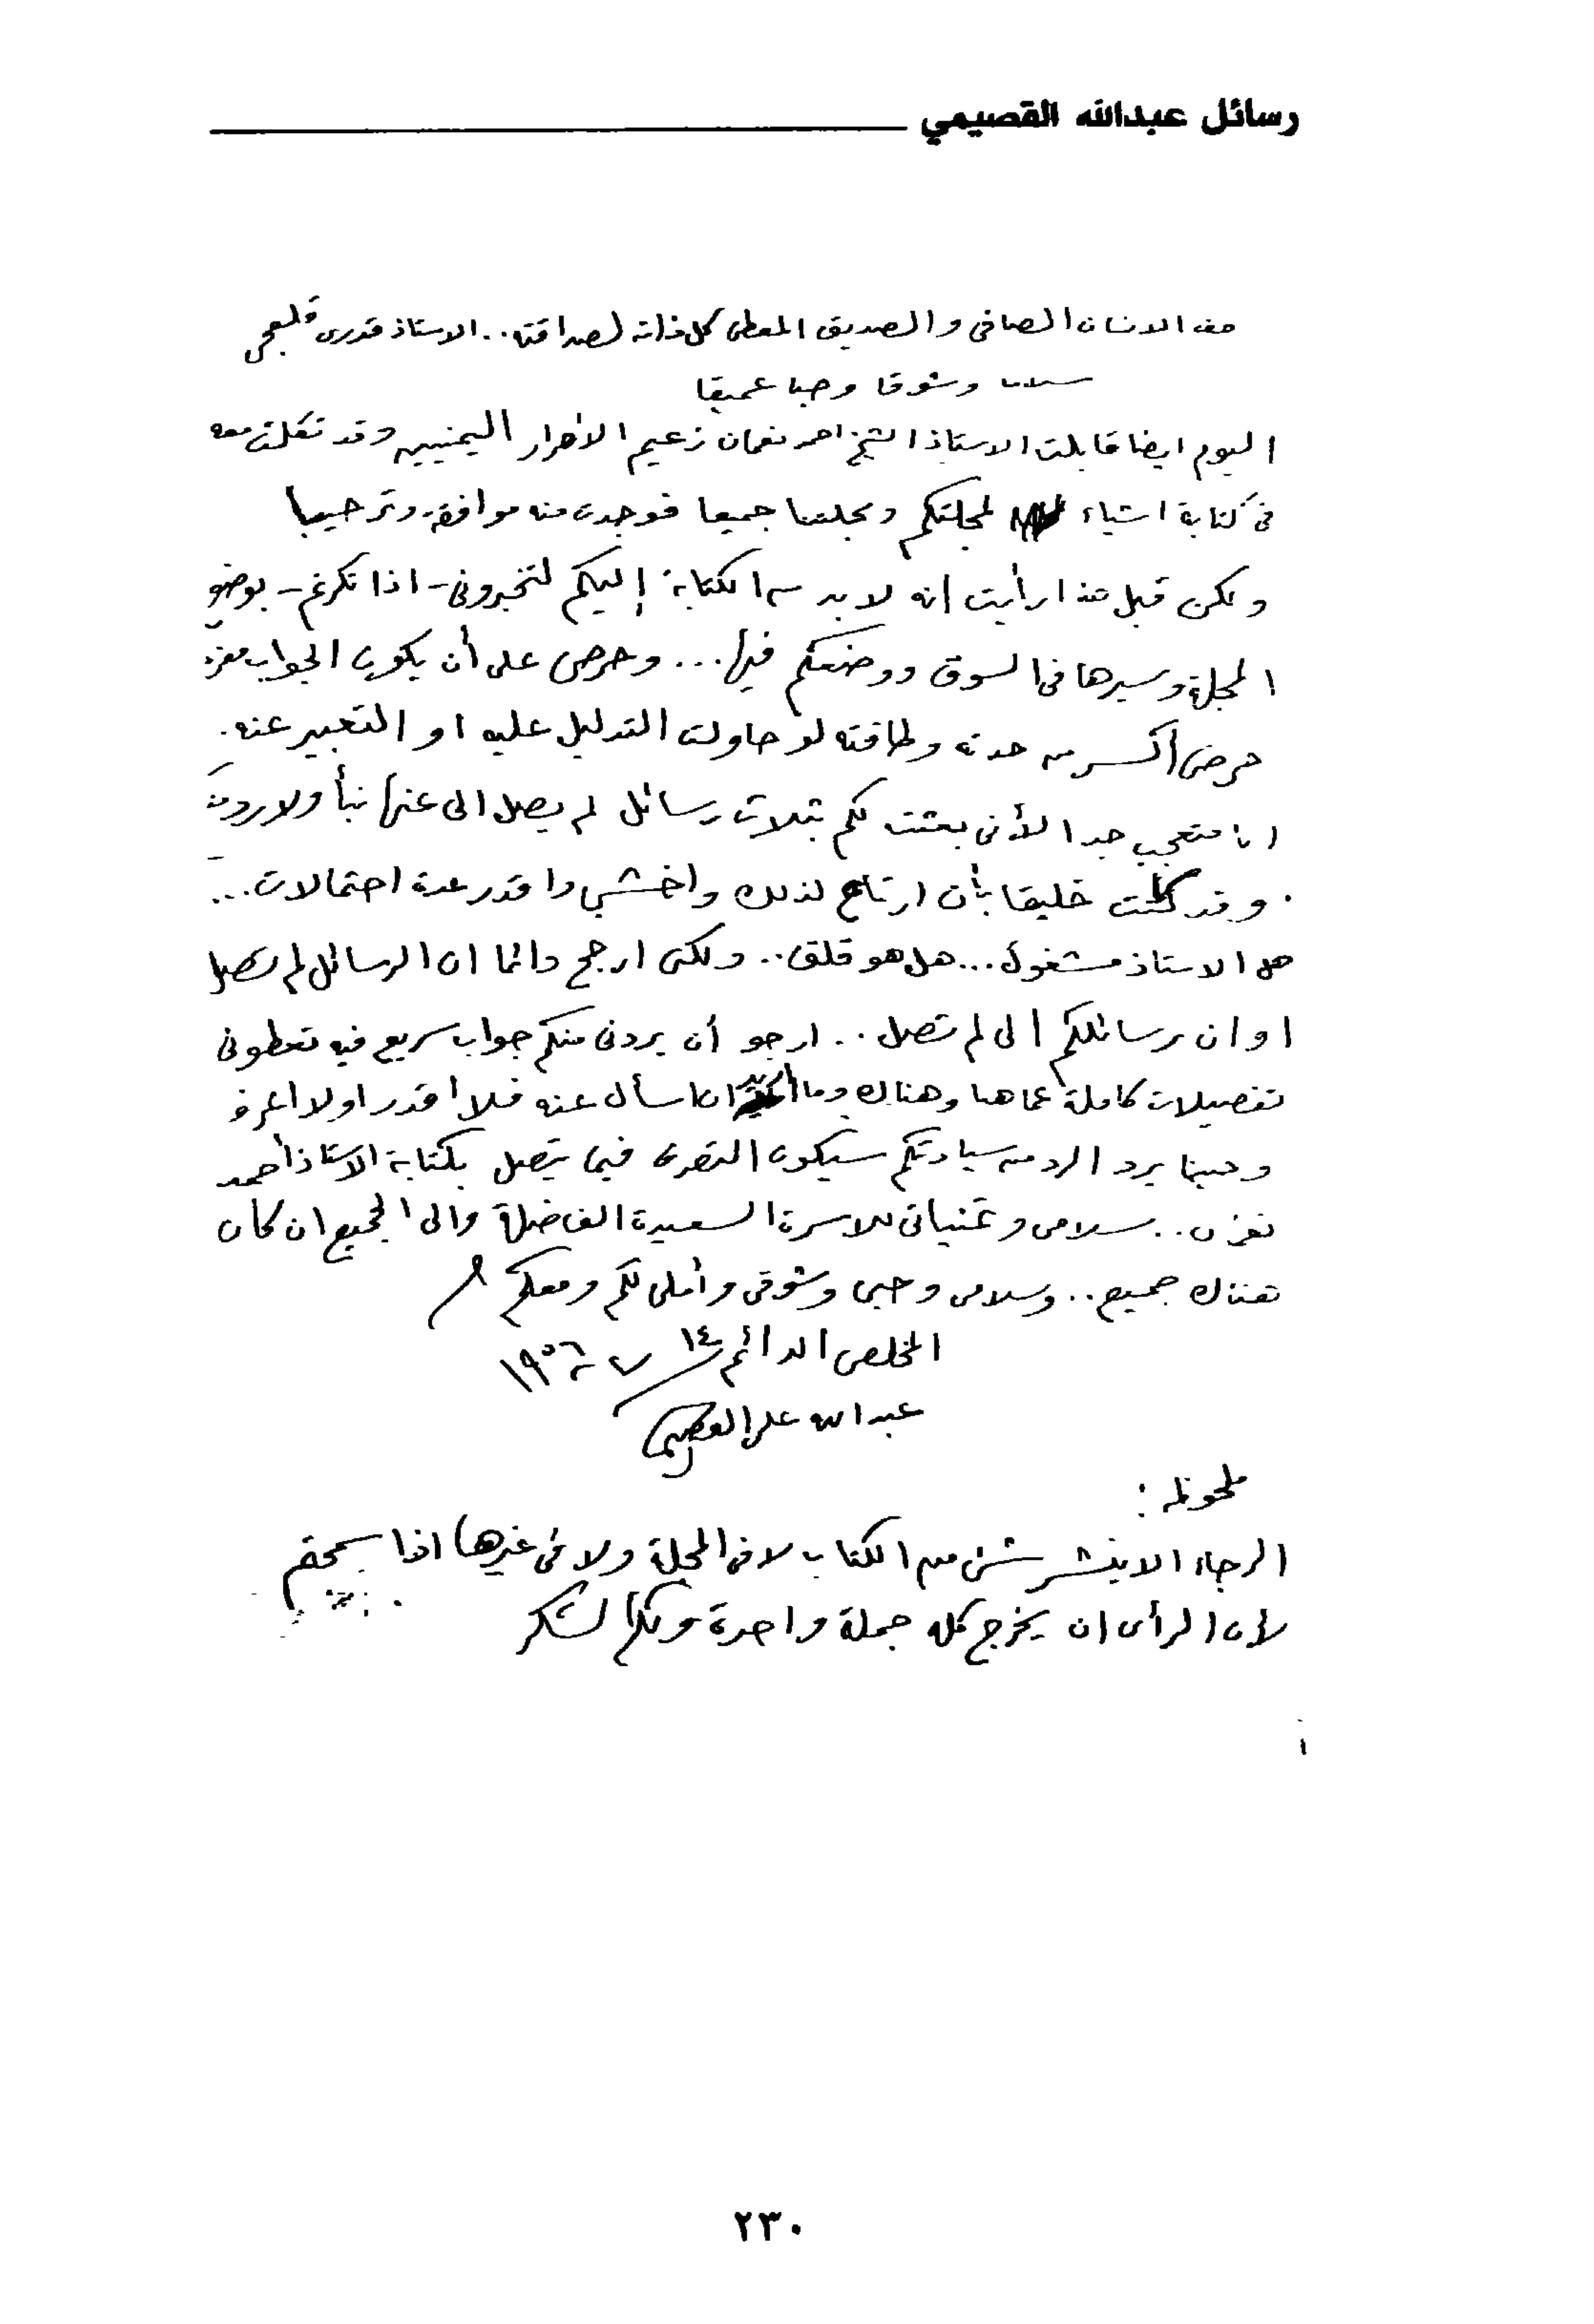 رسائل عبدالله القصيمي
الانسان الصافي والصديق المعطى كل ذاته لصداقته .. الاستاذ قدرى قلعجى
سلاما وشوقا وحبا عميقا
اليوم ايضا قابلت الاستاذ الشيخ احمد نعمان زعيم الاحرار اليمنيين وقد تكلمت معه
فى كتابة اشياء لمجلتكم ومجلتنا جميعا فوجدت منه موافقة وترحيبا
ولكن قبل هذا رأيت انه لا بد من الكتابة إليكم لتخبرونى - اذا تكرمتم - بوضع
المجلة وسيرها فى السوق ووضعكم فيها ... وحرصى على أن يكون الجواب
حرص أكبر من حدته وطاقته لو حاولت التدليل عليه او التعبير عنه .
انا متعجب جدا لأنى بعثت لكم بثلاث رسائل لم يصل الى عنها نبأ ولا ردود
وقد كنت خليقا بأن ارتاع لذلك واخشى واقدر عدة احتمالات ...
هل الاستاذ مشغول ... هل هو قلق .. ولكنى ارجح دائما ان الرسائل لم تصل
او ان رسائلكم الى لم تصل .. ارجو أن يردنى منكم جواب سريع فيه تعطونى
تفصيلات كاملة عما هنا وهناك وما اريد ان اسأل عنه فلا اقدر او لا اعرف
وحينما يرد الرد من سيادتكم سيكون التصرف فيما يتصل بكتابة الاستاذ أحمد
نعمان .. سلامى وتمنياتى للاسرة السعيدة الفاضلة والى الجميع ان كان
هناك جميع .. وسلامى وحبى وشوقى وأملى لكم ومعكم
المخلص الدائم ١٤ / ٧ - ١٩٥٦
عبدالله على القصيمى
ملحوظه :
الرجاء الا ينشر شىء من الكتاب لا فى المجلة ولا فى غيرها اذا سمحتم
لأن الرأى ان يخرج كله جملة واحدة ولكم الشكر
٢٣٠